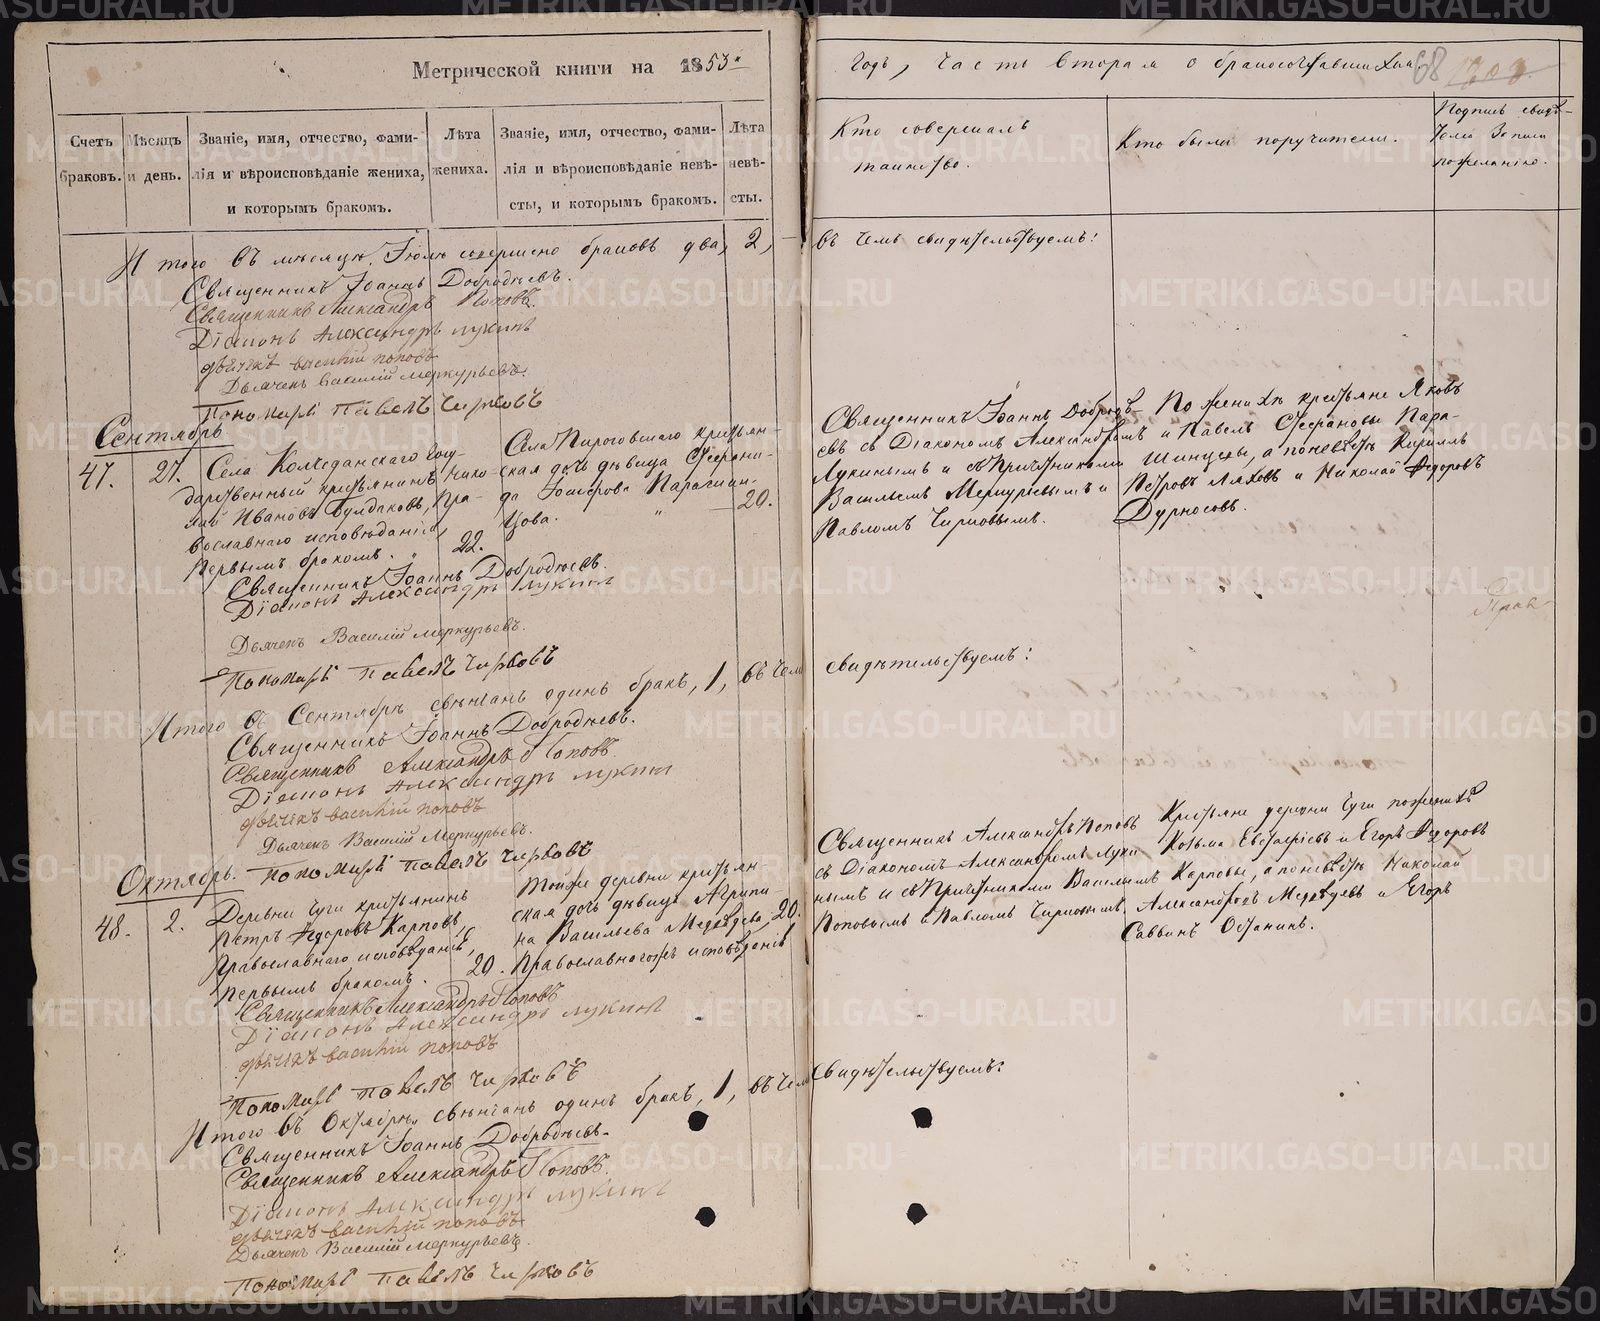 Метрической книги на 1853й
Счетъ браковъ.
Мѣсяцъ и день.
Званіе, имя, отчество, фами-
лія и вѣроисповѣданіе жениха,
и которымъ бракомъ.
Лѣта жениха.
Званіе, имя, отчество, фами-
лія и вѣроисповѣданіе невѣ-
сты, и которымъ бракомъ.
Лѣта невѣ-
сты.
Итого въ мѣсяцѣ Іюлѣ совершено браковъ два, 2,
Священникъ Іоаннъ Добродѣевъ.
Священникъ Александръ Поповъ.
Діаконъ Александръ Лукинъ
дьячекъ василій поповъ
Дьячекъ Василій Меркурьевъ.
Пономарь Павелъ Чирковъ
Сентябрь
47.
27.
Села Колчеданскаго госу-
дарственный крестьянинъ Нико-
лай Ивановъ Булдаковъ, Пра-
вославнаго исповѣданія,
Первымъ бракомъ.
22.
Села Пироговскаго крестьян-
ская дочь дѣвица
Парасkiн-
цова.
20.
Священникъ Іоаннъ Добродѣевъ.
Діаконъ Александръ Лукинъ
Дьячекъ Василій Меркурьевъ.
Пономарь Павелъ Чирковъ
Итого въ Сентябрѣ свѣнчанъ одинъ бракъ, 1, въ чемъ
Священникъ Іоаннъ Добродѣевъ.
Священникъ Александръ Поповъ
Діаконъ Александръ Лукинъ
дьячекъ василій поповъ
Дьячекъ Василій Меркурьевъ.
Пономарь Павелъ Чирковъ
Октябрь.
48.
2.
Деревни Чуги крестьянинъ
Петръ Ѳедоровъ Карповъ,
Православнаго исповѣданія,
Первымъ бракомъ.
20.
Тойже деревни крестьян-
ская дочь дѣвица Агрипи-
на Васильева Медвѣдева,
Православногожъ исповѣданія
20.
Священникъ Александръ Поповъ
Діаконъ Александръ Лукинъ
дьячекъ василій поповъ
Пономарь Павелъ Чирковъ
Итого въ Октябрѣ, свѣнчанъ одинъ бракъ, 1, въ чем
Священникъ Іоаннъ Добродѣевъ.
Священникъ Александръ Поповъ.
Діаконъ Александръ Лукинъ
дьячекъ василій поповъ
Дьячекъ Василій Меркурьевъ.
Пономарь Павелъ Чирковъ
годъ, часть вторая о бракосочетавшихся
68
Кто совершалъ
таинство.
Кто были поручители.
Подпись свидѣ-
телей записи
по желанію.
въ чемъ свидѣтельствуемъ:
Священникъ Іоаннъ Добродѣ-
евъ съ Діакономъ Александромъ
Лукинымъ и съ Причетниками
Васильемъ Меркурьевымъ и
Павломъ Чирковымъ.
По женихѣ крестьяне Яковъ
и Павелъ
Шинцовы, а по невѣстѣ Кириллъ
Петровъ Ляховъ и Николай Ѳедоровъ
Дурносовъ.
свидѣтельствуемъ:
Священникъ Александръ Поповъ
съ Діакономъ Александромъ Луки-
нымъ и съ Причетниками Васильемъ
Поповымъ и Павломъ Чирковымъ.
Крестьяне деревни Чуги по женихѣ
Козьма Евстафіевъ и Егоръ Ѳедоровъ
Карповы, а по невѣстѣ Николай
Александровъ Медвѣдевъ и Егоръ
Саввинъ Останинъ.
свидѣтельствуемъ:
METRIKI.GASO-URAL.RU